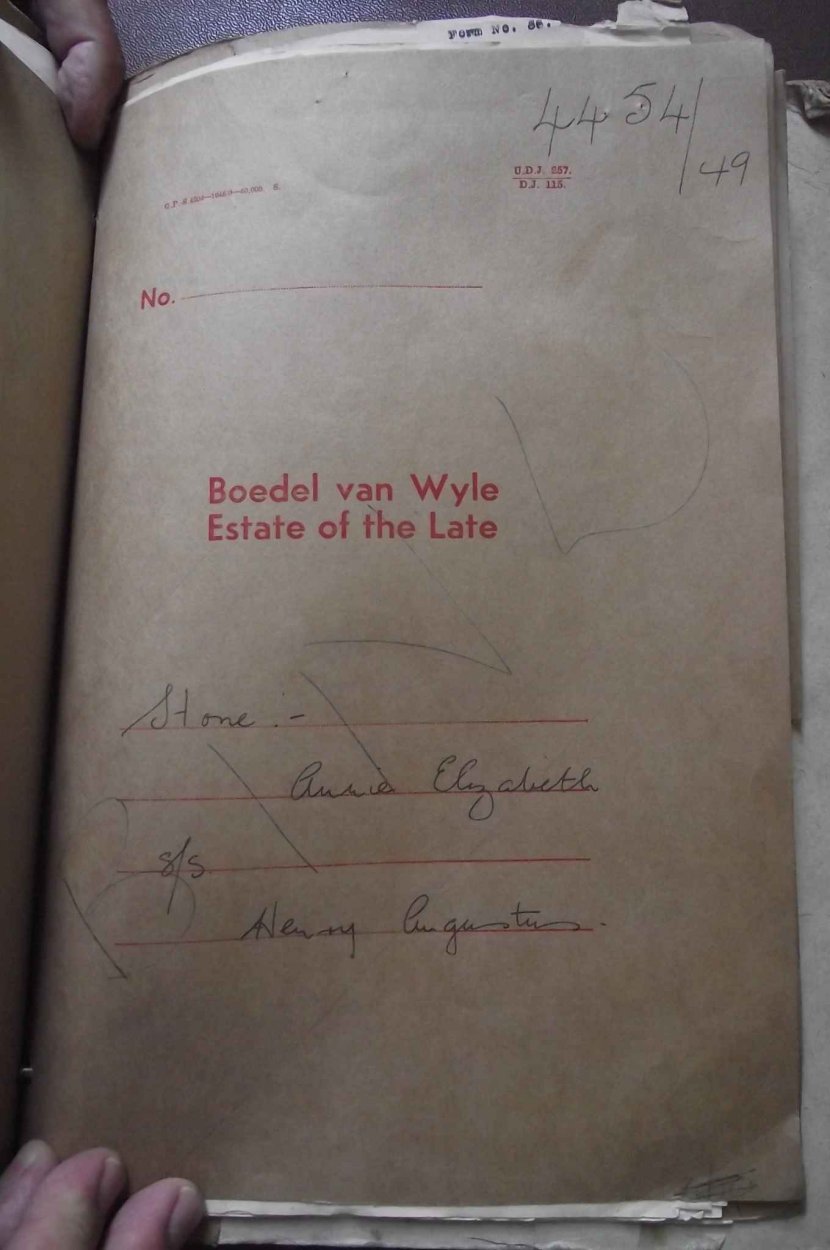 Form No. 66.
4454/49
U.D.J. 257.
D.J. 115.
No.
Boedel van Wyle
Estate of the Late
Stone :-
Annie Elizabeth
s/s
Henry Augustus.